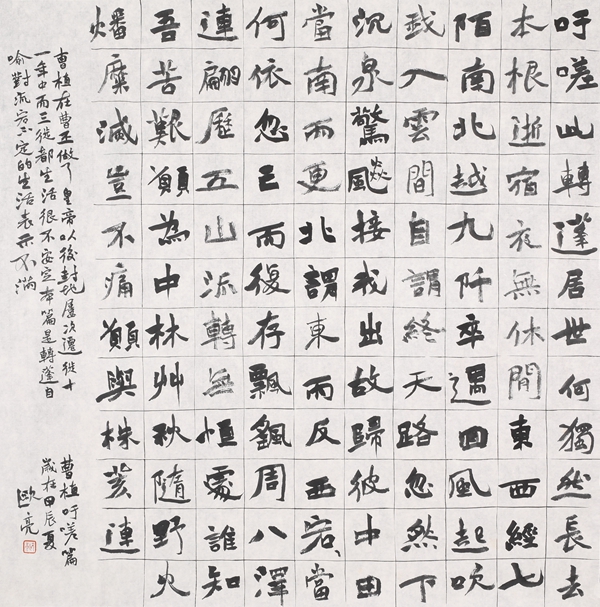 吁嗟此轉蓬居世何獨然長去
本根逝宿夜無休閒東西經七
陌南北越九阡卒遇回風起吹
我入雲間自謂終天路忽然下
沉泉驚飈接我出故歸彼中田
當南而更北謂東而反西宕、當
何依忽亡而復存飄飖周八澤
連翩歷五山流轉無恒處誰知
吾苦艱願為中林艸秋隨野火
燔糜滅豈不痛願與株荄連
曹植在曹丕做了皇帝以後對他屢次遷徙十
一年中而三徙都生活很不安定本篇是轉蓬自
喻對流宕不定的生活表示不滿
曹植吁嗟篇
歲在甲辰夏
歐亮